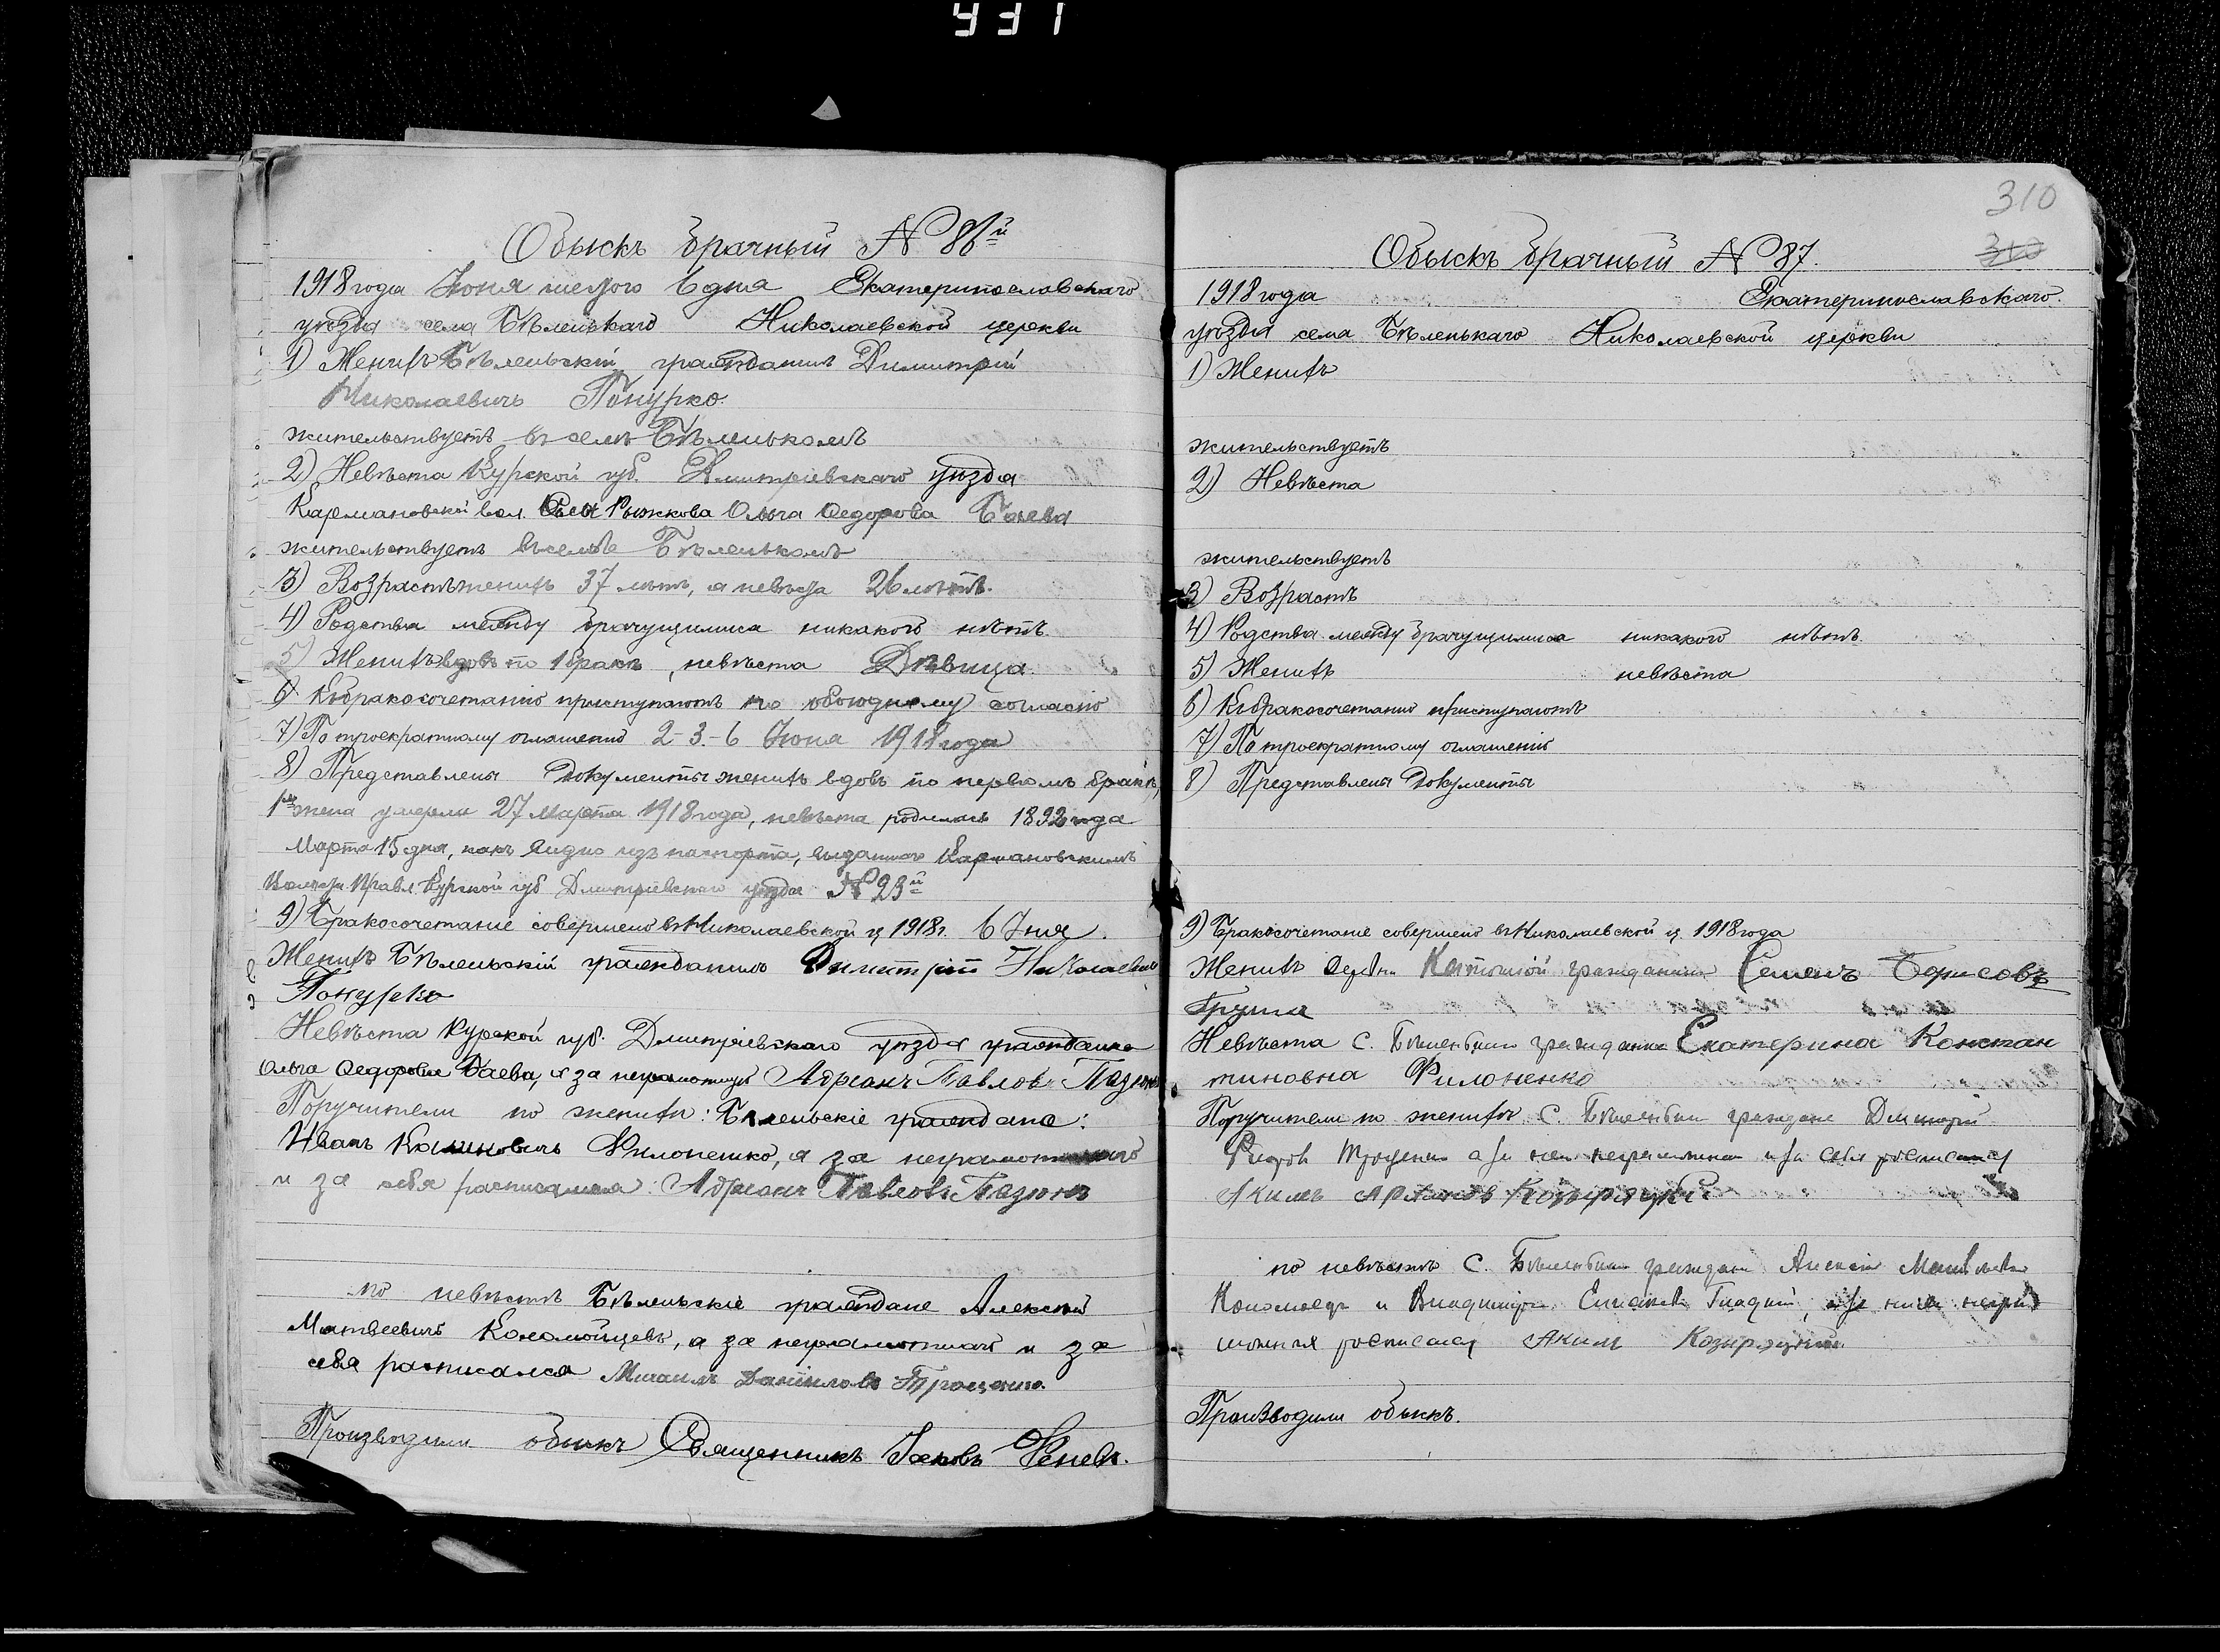 431
Обыскъ брачный № 86й
1918 года Іюня шестого 6 дня Екатеринославскаго
уѣзда села Бѣленькаго Николаевской церкви
1) Женихъ Бѣленьскій гражданинъ Димитрій
Николаевичъ Понурко.
жительствуетъ въ селѣ Бѣленькомъ
2) Невѣста Курской губ. Дмитріевскаго уѣзда
Кармановской вол. села Рыжкова Ольга Ѳедорова Баева
жительствуетъ въ селѣ Бѣленькомъ
3) Возрастъ женихъ 37 лѣтъ, а невѣста 26 лѣтъ.
4) Родства между брачущимися никакого нѣтъ.
5) Женихъ вдовъ по 1 бракѣ, невѣста Дѣвица.
6) Къ бракосочетанію приступаютъ по обоюдному согласію
7) По троекратному оглашенію 2-3.-6 Іюня 1918 года
8) Представлены Документы женихъ вдовъ по первомъ бракѣ,
1я жена умерла 27 Марта 1918 года, невѣста родилась 1892 года
Марта 15 дня, какъ видно изъ паспорта, выданнаго Кармановскимъ
Волост. Правл. Курской губ Дмитріевскаго уѣзда № 23й
9) Бракосочетаніе совершено въ Николаевской ц 1918 г. 6 Іюня.
Женихъ Бѣленьскій гражданинъ Димитрій Николаевичъ
Понурко
Невѣста Курской губ. Дмитріевскаго уѣзда гражданка
Ольга Ѳедорова Баева, а за неграмотную Адріанъ Павловъ
Поручители по женихѣ: Бѣленьскіе граждане:
Иванъ Филоненко, а за неграмотнаго
и за себя расписался: Адріанъ Павловъ
по невѣстѣ Бѣленьскіе граждане Алексѣй
Матвеевичъ Коломойцевъ, а за неграмотнаго и за
себя расписался Михаилъ Даніиловъ Троценко.
Производили обыскъ Священникъ Іаковъ
310
310
Обыскъ брачный № 87.
1918 года Екатеринославскаго.
уѣзда села Бѣленькаго Николаевской церкви
1) Женихъ
жительствуетъ
2) Невѣста
жительствуетъ
3) Возрастъ
4) Родства между брачущимися никакого нѣтъ.
5) Женихъ невѣста
6) Къ бракосочетанію приступаютъ
7) По троекратному оглашенію
8) Представлены Документы
9) Бракосочетаніе совершено въ Николаевской ц. 1918 года
Женихъ гражданинъ Семенъ Борисовъ
Невѣста с. гражданка Екатерина Констан
тиновна Филоненко
Поручители по женихѣ с. граждане Дмитрій
Троценко а за неграмотнаго и за себя росписался
Акимъ Козыряцкій
по невѣстѣ с. граждане Алексѣй Матвеевъ
Коломоецъ и Владиміръ Гладкій, а за нихъ негра
мотныхъ росписался Акимъ Козыряцкій
Производили обыскъ.